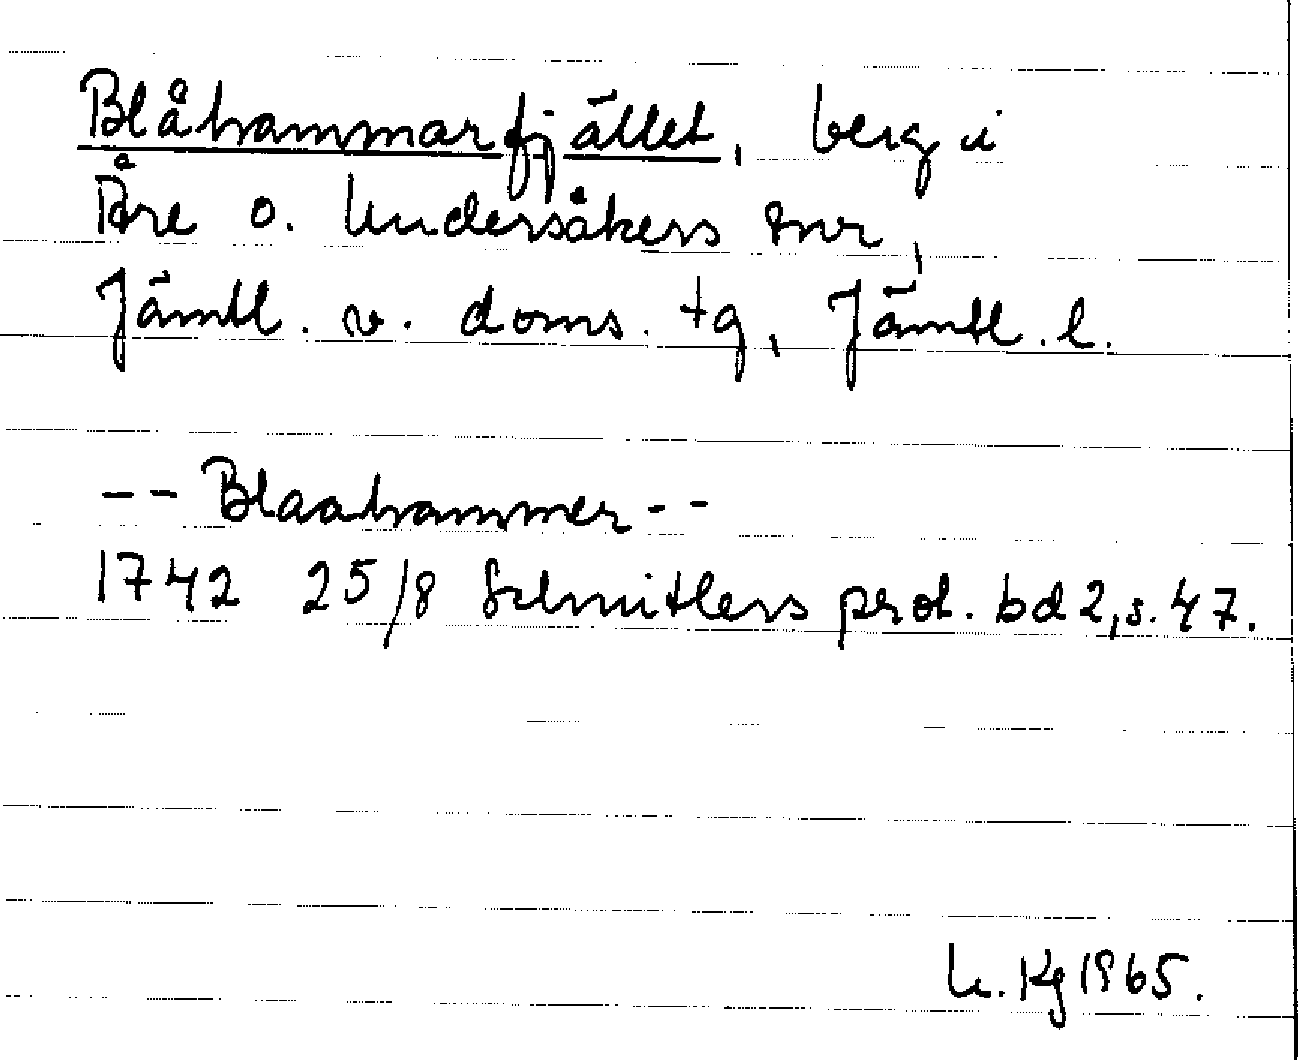 Blåhammarfjället, berg i
Åre o. Undersåkers snr,
Jämtl. v. doms. tg, Jämtl. l.
-- Blaahammer --
1742 25/8 Schnitlers prot. bd 2, s. 47.
U. Kg 1965.